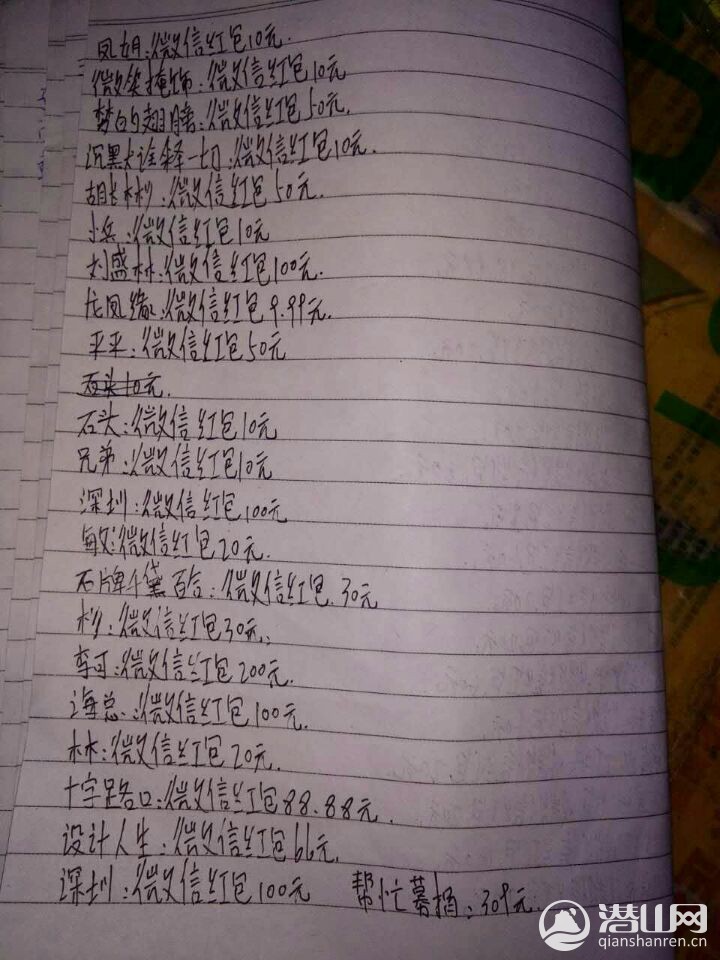 凤姐:微信红包10元.
微笑掩饰:微信红包10元
梦的翅膀:微信红包50元.
沉默诠释一切:微信红包10元.
胡彬彬:微信红包50元.
小兵:微信红包10元
刘盛林:微信红包100元.
龙凤缘:微信红包9.99元.
平平:微信红包50元
石头10元.
石头:微信红包10元
兄弟:微信红包10元
深圳:微信红包100元
敏:微信红包20元.
石牌千黛百合:微信红包30元
杉:微信红包30元.
李可:微信红包200元.
海总:微信红包100元.
林:微信红包20元.
十字路口:微信红包88.88元.
设计人生:微信红包66元.
深圳:微信红包100元 帮忙募捐:309元.
潜山网
qianshanren.cn